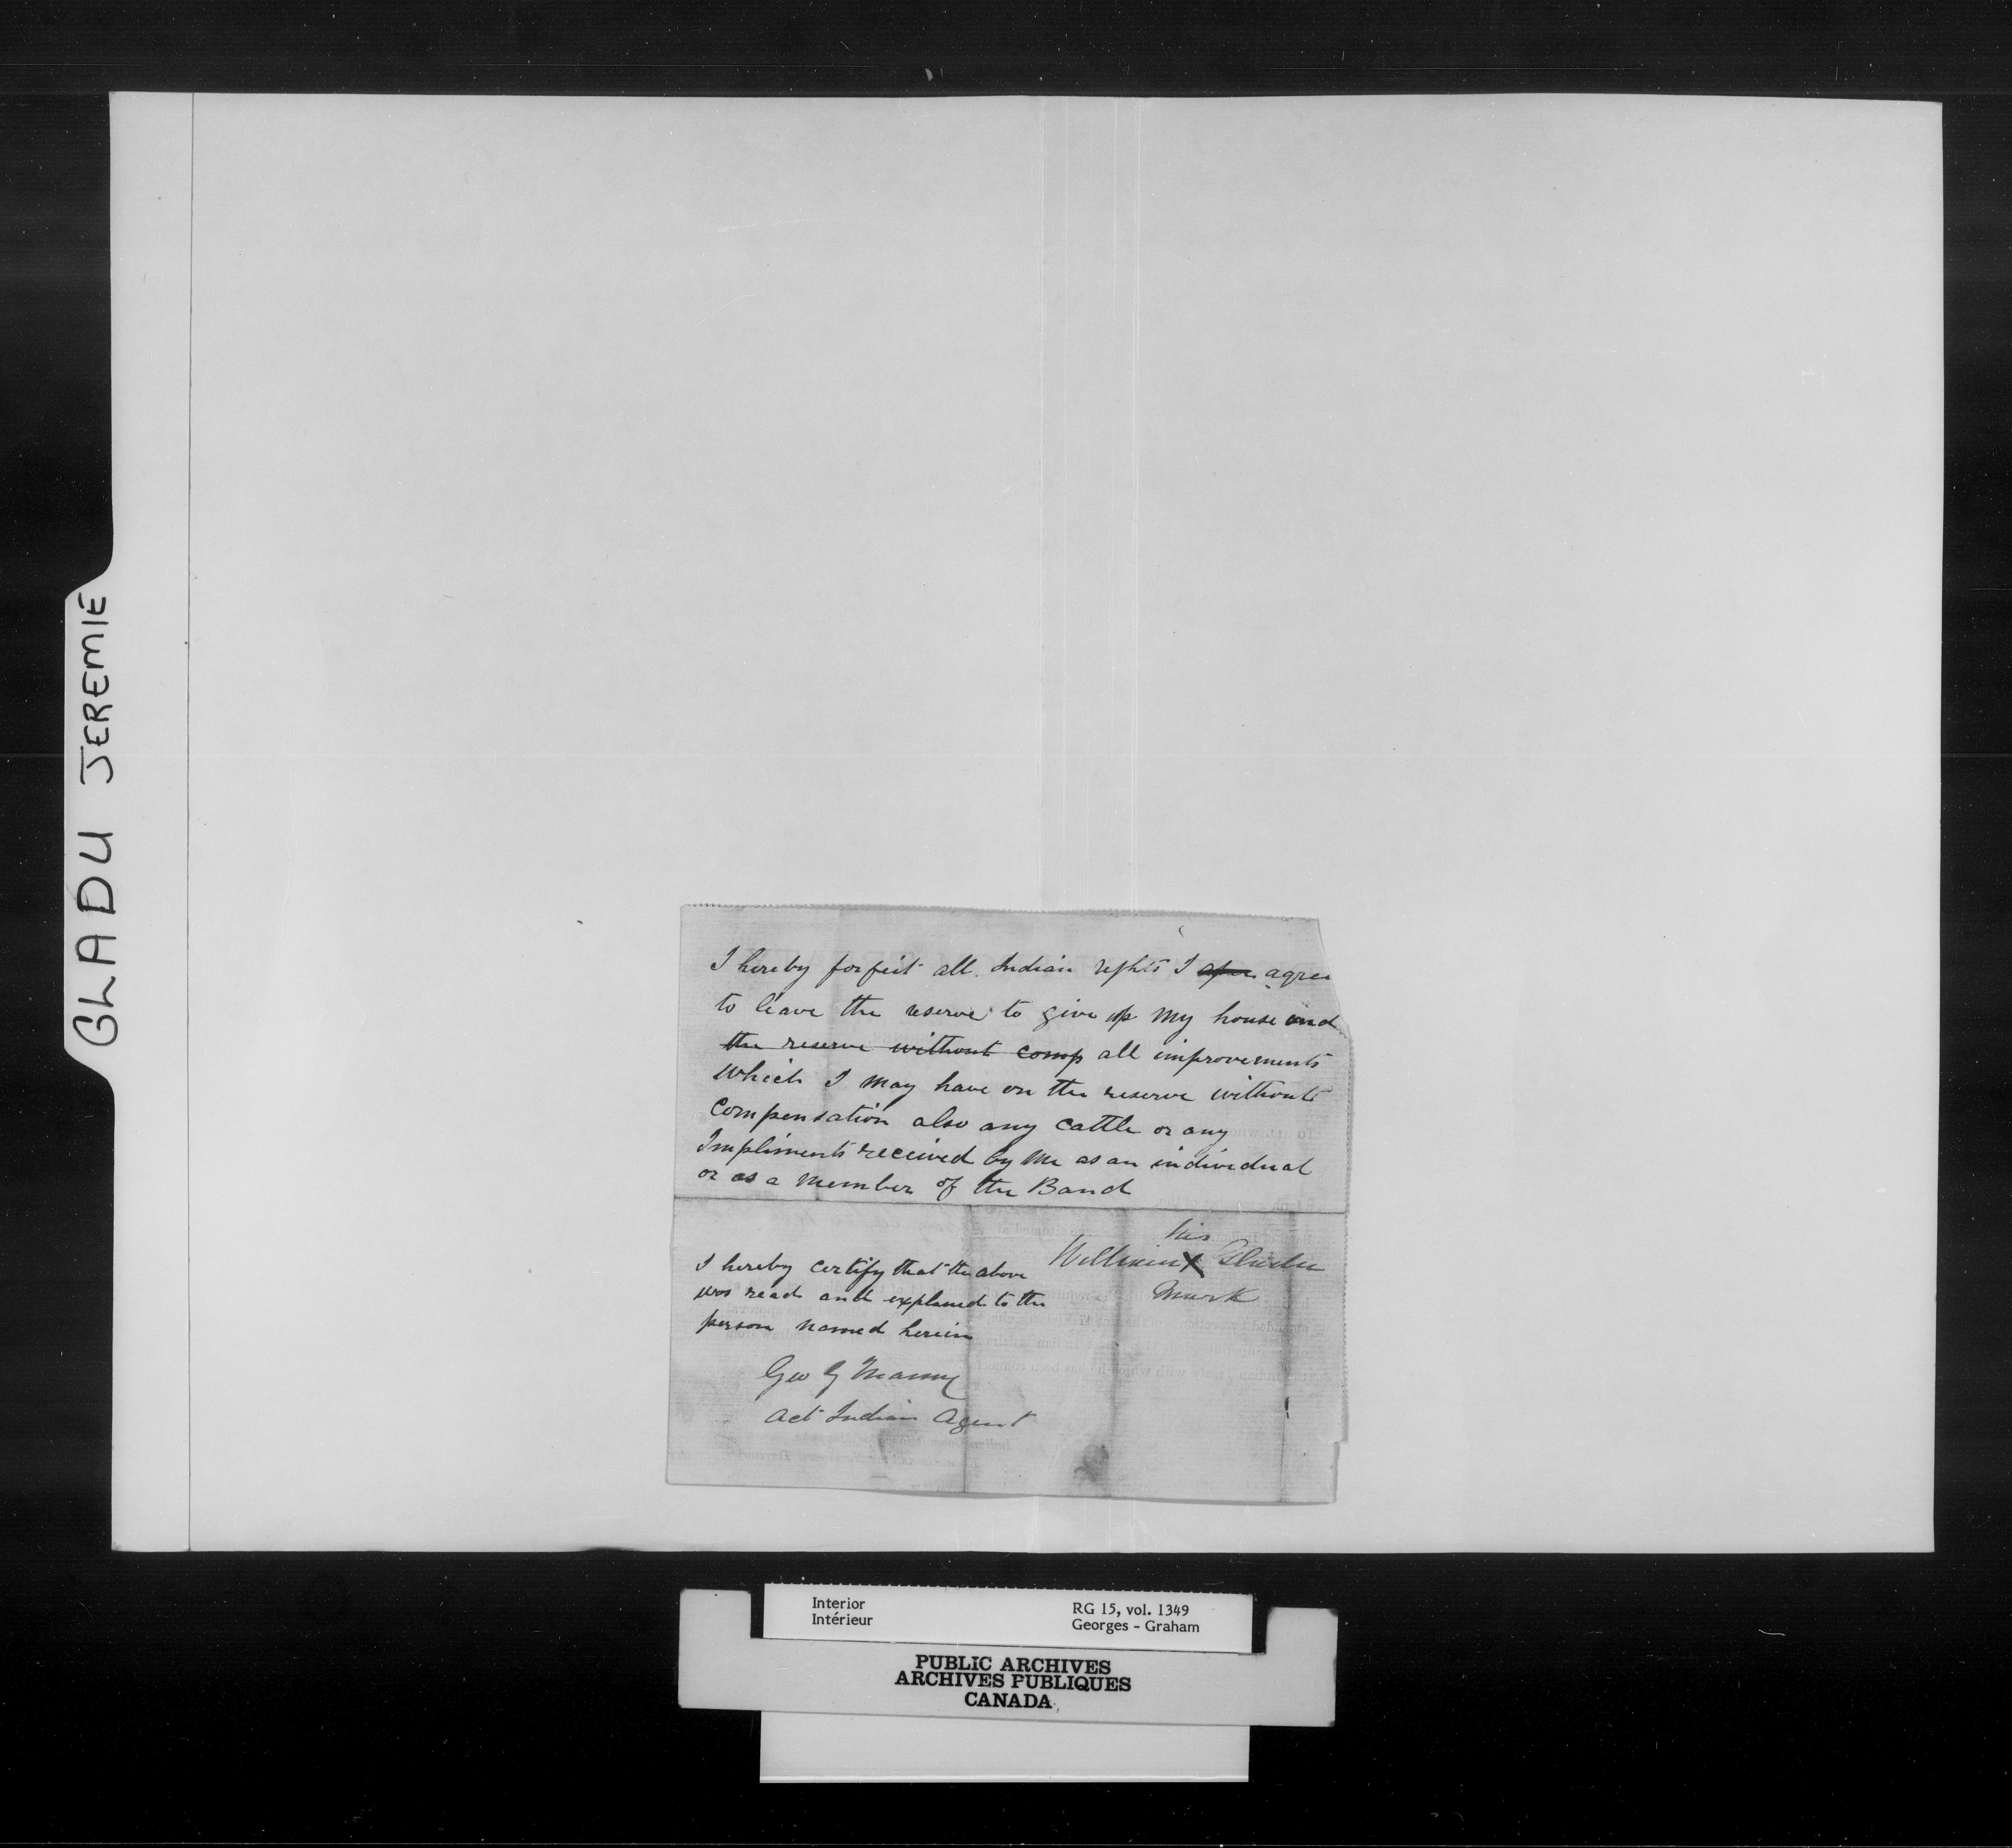 GLADU JEREMIE
I hereby forfeit all Indian rights I agree
to leave the reserve to give up my house and
the reserve without comp all improvements
which I may have on the reserve without
compensation also any cattle or any
Impliments received by me as an individual
or as a member of the Band
his
William X Gladu
mark
I hereby certify that the above
was read and explaned to the
person named herein
Geo G Mann
Act Indian Agent
Interior
Intérieur
RG 15, vol. 1349
Georges - Graham
PUBLIC ARCHIVES
ARCHIVES PUBLIQUES
CANADA